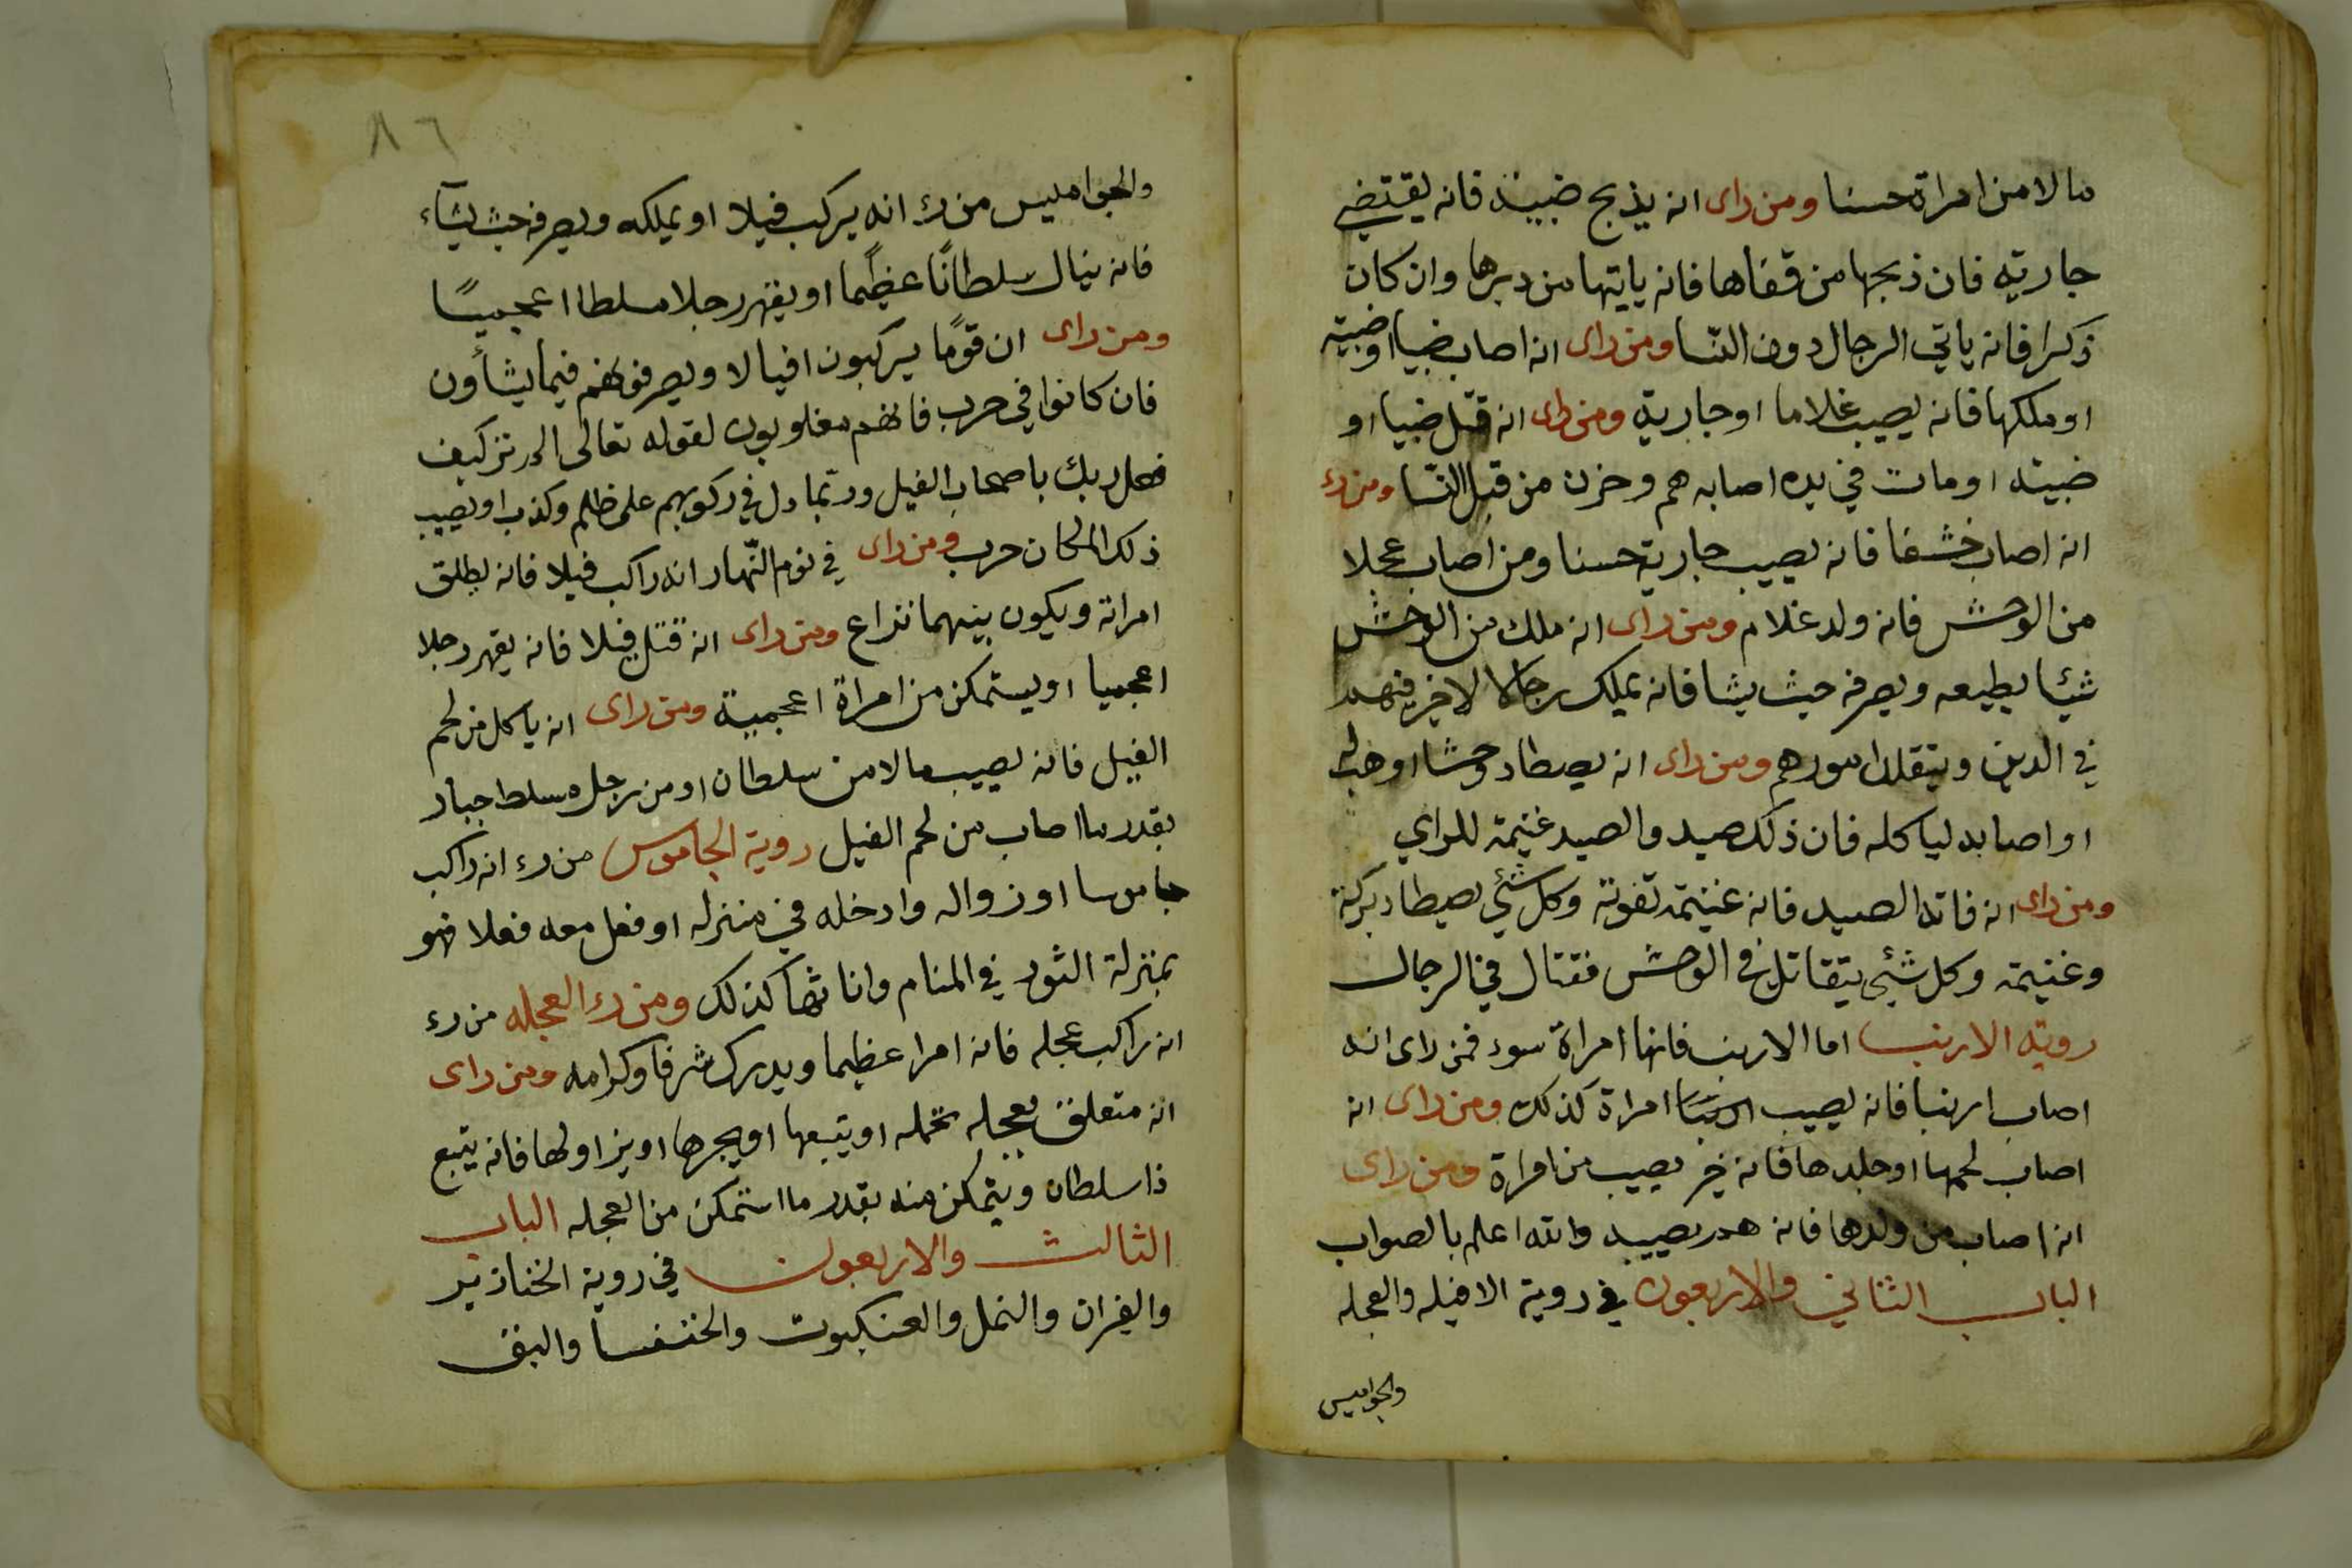 مالا من امراة حسنا ومن راى انه يذبح ضبية فانه يقتضي
جارية فان ذبحها من قفاها فانه ياتيها من دبرها وان كان
ذكرا فانه ياتي الرجال دون النسا ومن راى انه اصاب ضبيا او ضبيه
او ملكها فانه يصيب غلاما او جارية ومن راى انه قتل ضبيا او
ضبية او مات في يده اصابه هم وحزن من قبل النسا ومن رء
انه اصاب خشفا فانه يصيب جارية حسنا ومن اصاب عجلا
من الوحش فانه ولد غلام ومن راى انه ملك من الوحش
شيئا يطيعه ويصرفه حيث يشا فانه يملك رجالا لا خير فيهم
في الدين وينقلد امورهم ومن راى انه يصطاد وحشا او وهب له
او اصابه لياكله فان ذلك صيد والصيد غنيمة للراي
ومن راى انه فاته الصيد فانه غنيمة تفوته وكل شئي يصطاد بركة
وغنيمة وكل شئي يتقاتل في الوحش فقتال في الرجال
روية الارنب اما الارنب فانها امراة سوء فمن راى انه
اصاب ارنبا فانه يصيب امراة كذلك ومن راى انه
اصاب لحمها او جلدها فانه خير يصيب من امراة ومن راى
انه اصاب من ولدها فانه هم يصيبه والله اعلم بالصواب
الباب الثاني والاربعون في روية الافيله والعجله
والجواميس
٨٦
والجواميس من رء انه يركب فيلا او يملكه ويصرفه حيث يشآء
فانه ينال سلطانًا عظيمًا او يقهر رجلا مسلطا اعجميًا
ومن راى ان قومًا يركبون افيالا ويصرفونهم فيما يشأون
فان كانوا في حرب فانهم مغلوبون لقوله تعالى الم تر كيف
فعل ربك باصحاب الفيل وربما دل في ركوبهم على ظلم وكذب او يصيب
ذلك المكان حرب ومن راى في نوم النهار انه راكب فيلا فانه يطلق
امراته ويكون بينهما نزاع ومن راى انه قتل فيلا فانه يقهر رجلا
اعجميا او يستمكن من امراة اعجمية ومن راى انه ياكل من لحم
الفيل فانه يصيب مالا من سلطان او من رجل مسلط جبار
بقدر ما اصاب من لحم الفيل روية الجاموس من رء انه راكب
جاموسا او زواله وادخله في منزله او فعل معه فعلا فهو
بمنزلة الثور في المنام واناثها كذلك ومن رء العجله من رء
انه راكب عجله فانه امرا عظيما ويدرك شرفا وكرامه ومن راى
انه متعلق بعجله تحمله او يتبعها او يجرها او يزاولها فانه يتبع
ذا سلطان ويتمكن منه بقدر ما استمكن من العجله الباب
الثالث والاربعون في روية الخنازير
والفيران والنمل والعنكبوت والخنفسا والبق